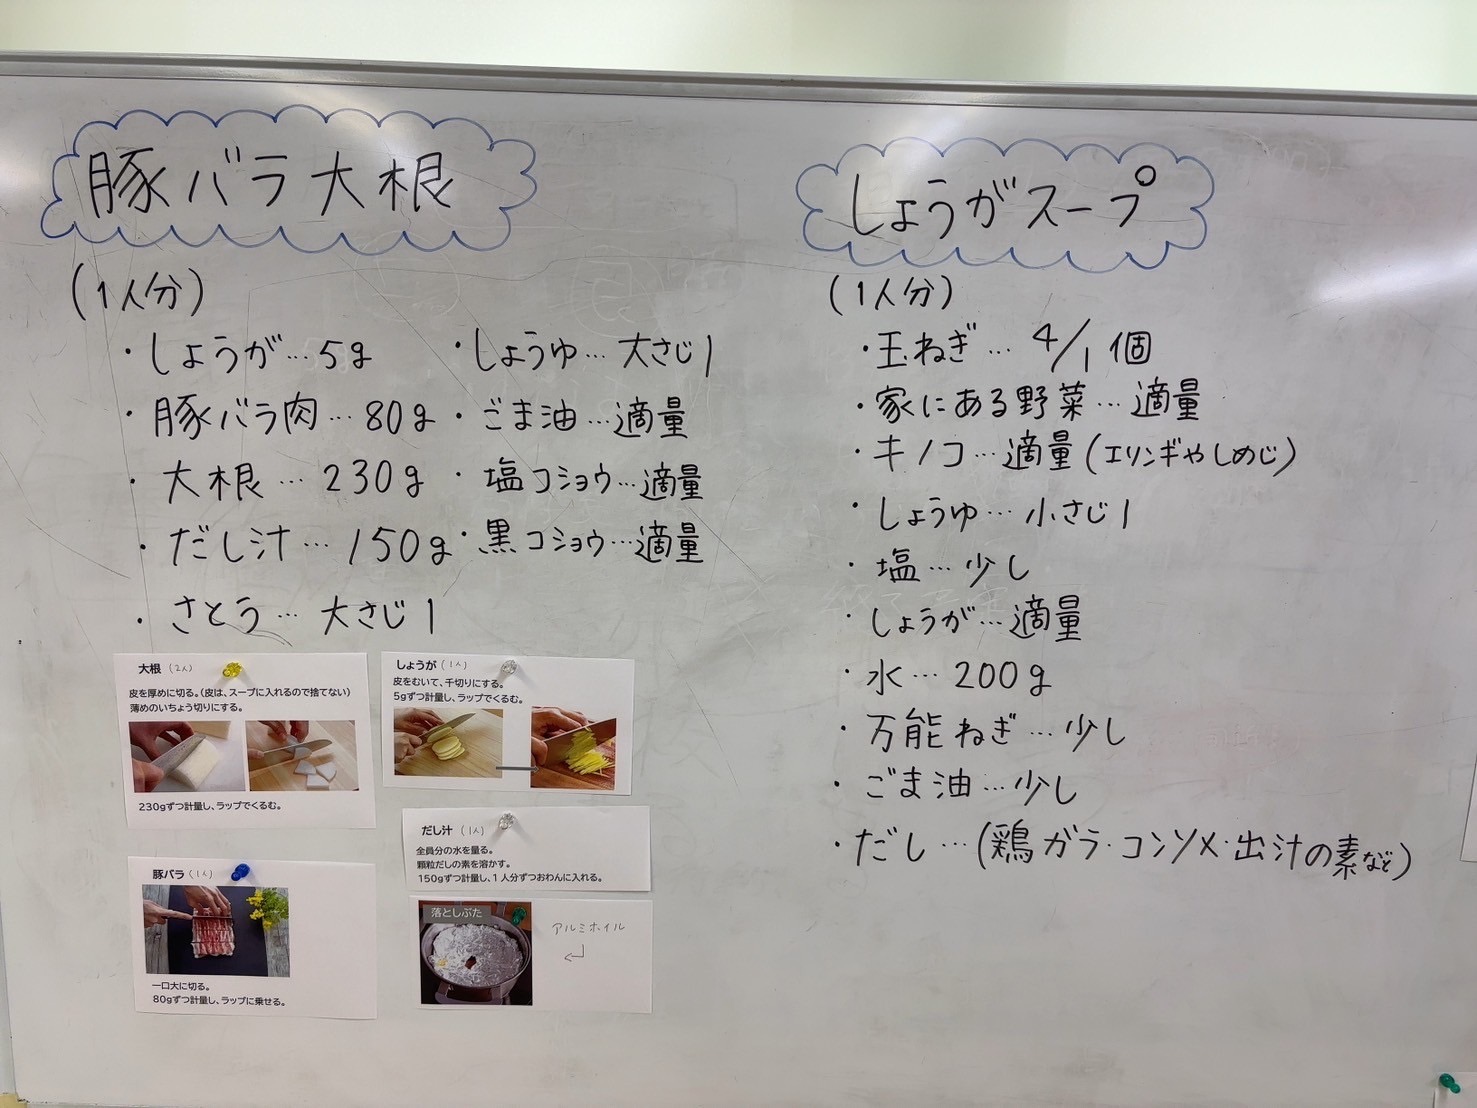 豚バラ大根
(1人分)
・しょうが…5g
・豚バラ肉…80g
・大根…230g
・だし汁…150g
・さとう…大さじ1
・しょうゆ…大さじ1
・ごま油…適量
・塩コショウ…適量
・黒コショウ…適量
大根(2人)
皮を厚めに切る。(皮は、スープに入れるので捨てない)
薄めのいちょう切りにする。
230gずつ計量し、ラップでくるむ。
しょうが(1人)
皮をむいて、千切りにする。
5gずつ計量し、ラップでくるむ。
豚バラ(1人)
一口大に切る。
80gずつ計量し、ラップに乗せる。
だし汁(1人)
全員分の水を量る。
顆粒だしの素を溶かす。
150gずつ計量し、1人分ずつおわんに入れる。
落としぶた
アルミホイル
しょうがスープ
(1人分)
・玉ねぎ…4/1個
・家にある野菜…適量
・キノコ…適量(エリンギやしめじ)
・しょうゆ…小さじ1
・塩…少し
・しょうが…適量
・水…200g
・万能ねぎ…少し
・ごま油…少し
・だし…(鶏ガラ・コンソメ・出汁の素など)